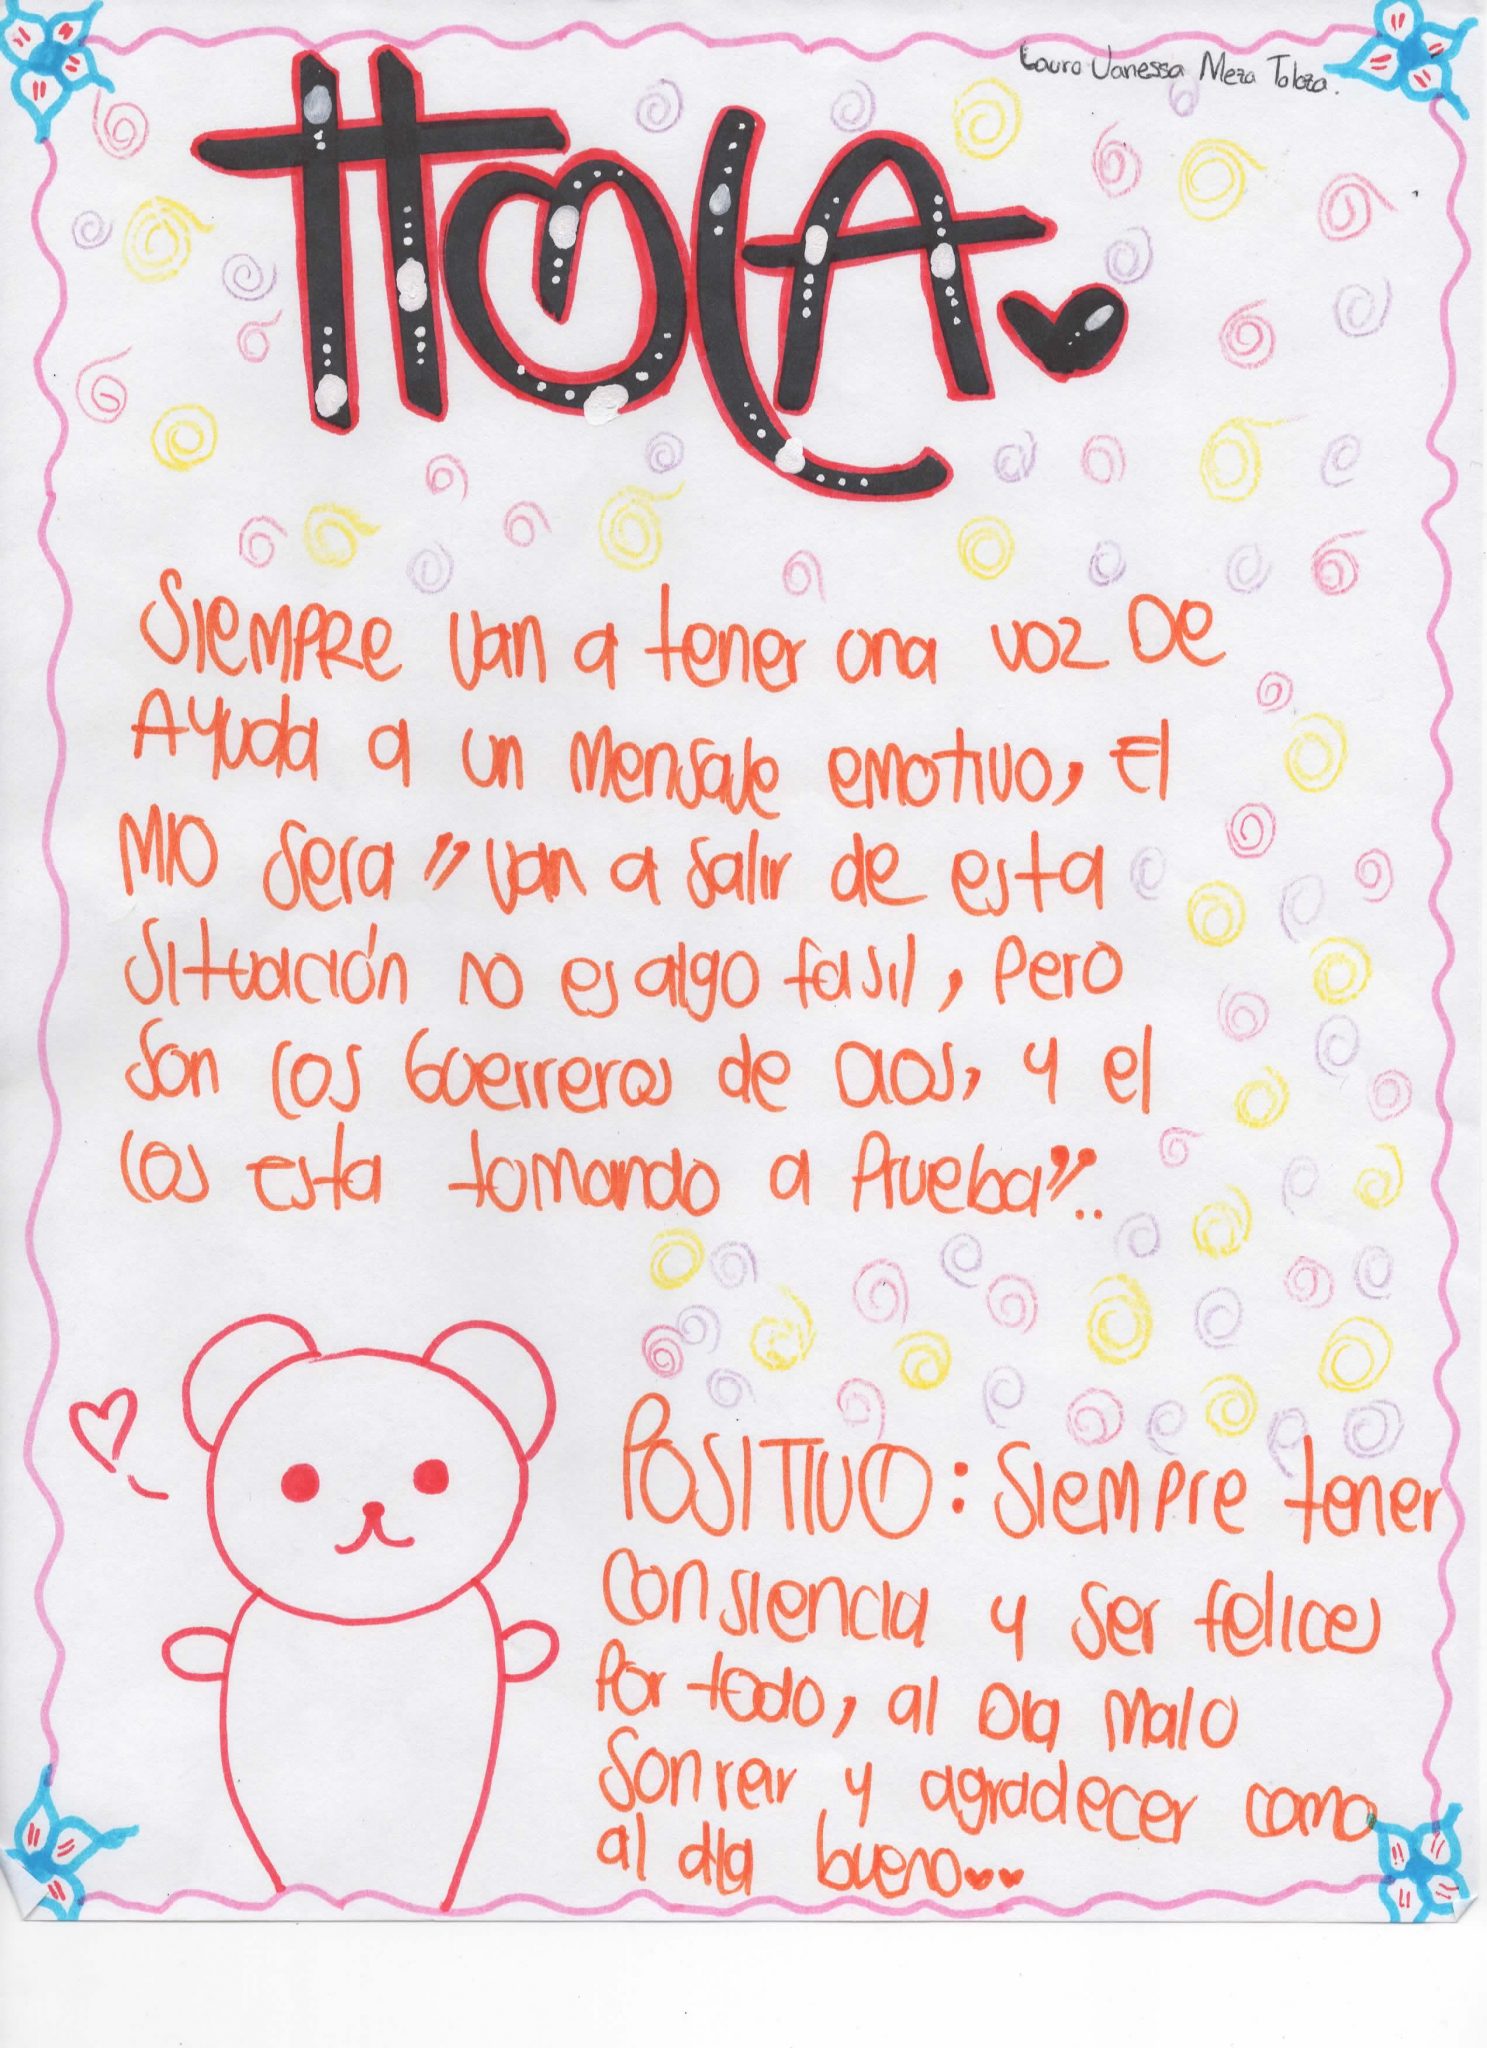 Laura Vanessa Meza Toloza.
HOLA
Siempre van a tener una voz De
Ayuda a un mensaje emotivo, El
Mio sera "van a salir de esta
situación no es algo fasil, Pero
son los Guerreros de Dios, y el
los esta tomando a Prueba"..
POSITIVO: Siempre tener
consiencia y ser felices
Por todo, al Dia malo
sonreir y agradecer como
al dia bueno